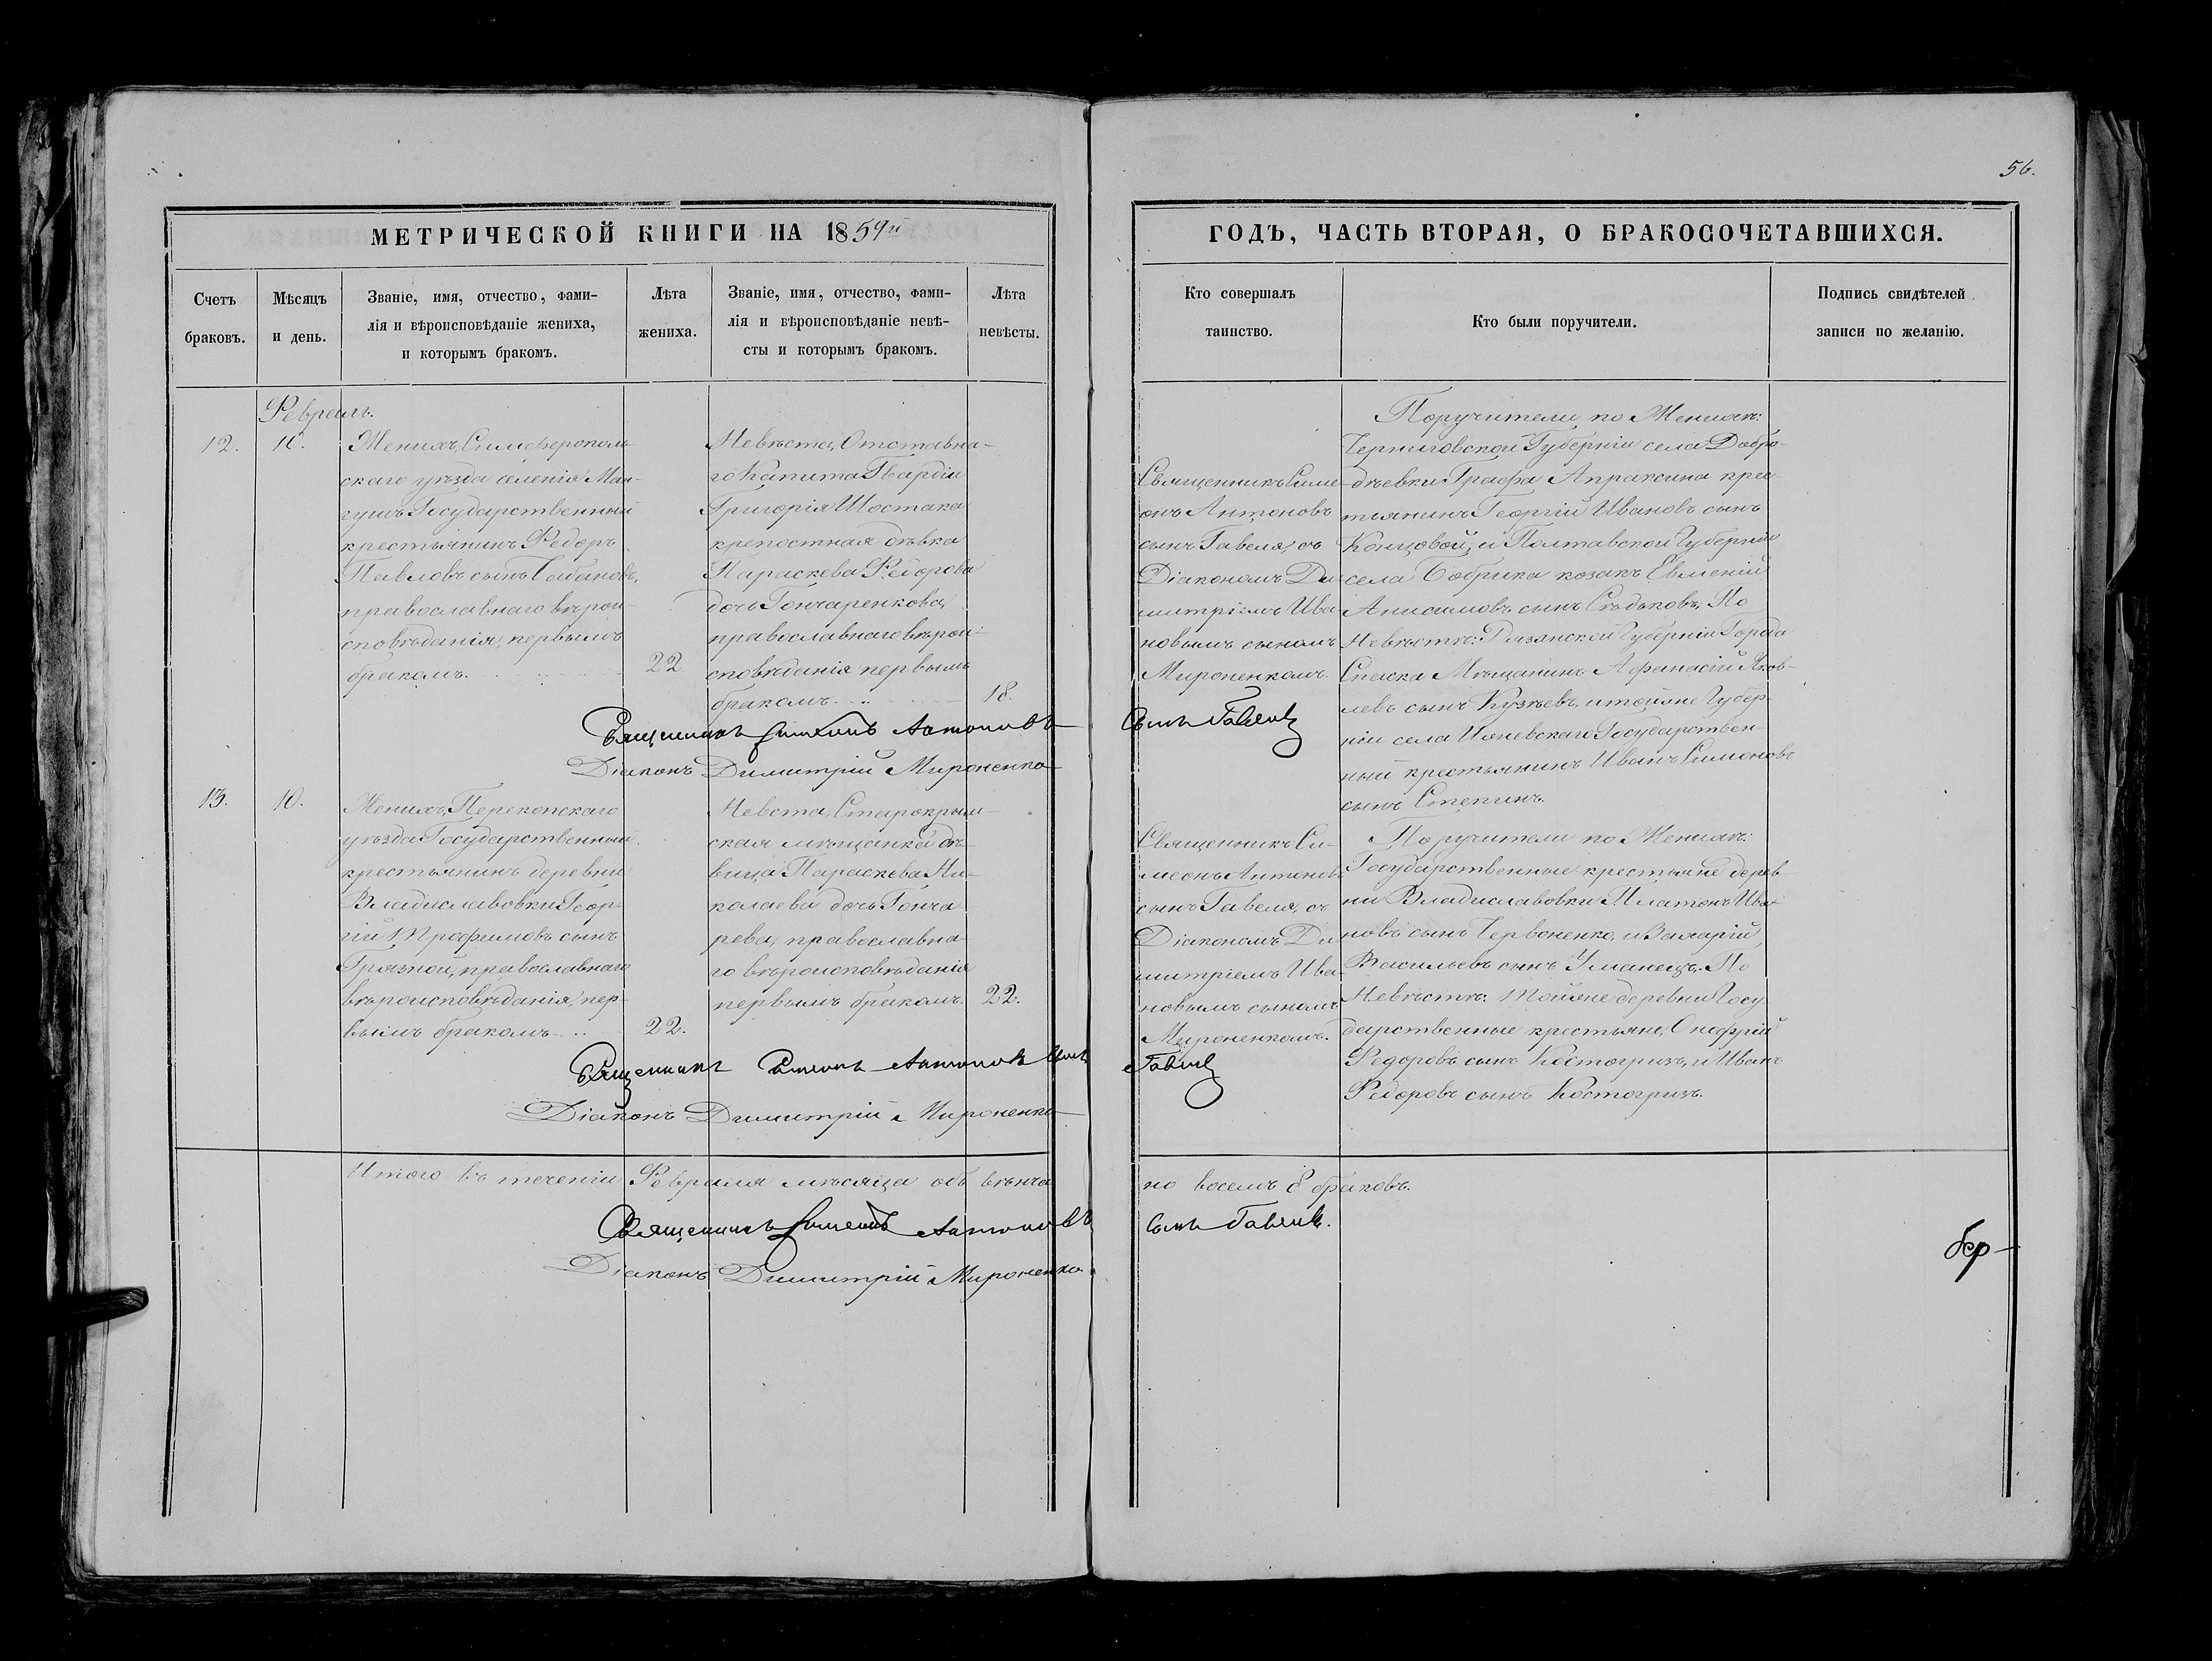 56.
МЕТРИЧЕСКОЙ КНИГИ НА 1859й
ГОДЪ, ЧАСТЬ ВТОРАЯ, О БРАКОСОЧЕТАВШИХСЯ.
Счетъ
браковъ.
Мѣсяцъ
и день.
Званіе, имя, отчество, фами-
лія и вѣроисповѣданіе жениха,
и которымъ бракомъ.
Лѣта
жениха.
Званіе, имя, отчество, фами-
лія и вѣроисповѣданіе невѣ-
сты и которымъ бракомъ.
Лѣта
невѣсты.
Кто совершалъ
таинство.
Кто были поручители.
Подпись свидѣтелей
записи по желанію.
Февраль.
12.
10.
Женихъ, Симферополь-
скаго уѣзда селенія Ман-
гушъ Государственный
крестьянинъ Федоръ
Павловъ сынъ
православнаго вѣрои-
сповѣданія, первымъ
бракомъ.
22
Невѣста, Отставна-
го Капита Гвардіи
Григорія Шостака
крепостная дѣвка
Параскева Федорова
дочь Гончаренкова,
православнаго вѣрои-
сповѣданія первымъ
бракомъ.
18.
Священникъ Симе-
онъ Антоновъ
сынъ Гавеля, съ
Діакономъ Ди-
митріемъ Ива-
новымъ сыномъ
Мироненкомъ.
Поручители по Женихѣ:
Черниговской Губерніи села Добро-
дѣевки Графа Апраксина крес-
тьянинъ Георгій Ивановъ сынъ
Концовой, и Полтавской Губерніи
села Бобрика козакъ Евменій
Анисимовъ сынъ Сѣдьковъ, По
Невѣстѣ: Рязанской Губерніи Города
Спаска Мѣщанинъ Афанасій Яков-
левъ сынъ Кузѣевъ, и тойже Губер-
ніи села Государствен-
ный крестьянинъ Иванъ Симоновъ
сынъ Степинъ.
Священникъ Симеонъ Антоновъ
сынъ Гавеля
Діаконъ Димитрій Мироненко
13.
10.
Женихъ, Перекопскаго
уѣзда Государственный
крестьянинъ деревни
Владиславовки Геор-
гій Трофимовъ сынъ
Грязной, православнаго
вѣроисповѣданія, пер-
вымъ бракомъ
22.
Невста, Старокрым-
ская мѣщанка дѣ-
вица Параскева Ни-
колаева дочь Гонча-
рева, православна-
го вѣроисповѣданія
первымъ бракомъ.
22.
Священникъ Си-
меонъ Антоновъ
сынъ Гавеля, съ
Діакономъ Ди-
митріемъ Ива-
новымъ сыномъ
Мироненкомъ.
Поручители по Женихѣ:
Государственные крестьяне дерев-
ни Владиславовки Платонъ Ива-
новъ сынъ Червоненко, и Захарій
Васильевъ сынъ Уманецъ. По
Невѣстѣ: Тойже деревни Госу-
дарственные крестьяне, Онофрій
Федоровъ сынъ Костогризъ, и Иванъ
Федоровъ сынъ Костогризъ.
Священникъ Симеонъ Антоновъ сынъ
Гавеля
Діаконъ Димитрій Мироненко
Итого въ теченіи Февраля мѣсяца обвѣнча-
но восемъ 8 браковъ.
Священникъ Симеонъ Антоновъ
сынъ Гавеля.
Діаконъ Димитрій Мироненко.